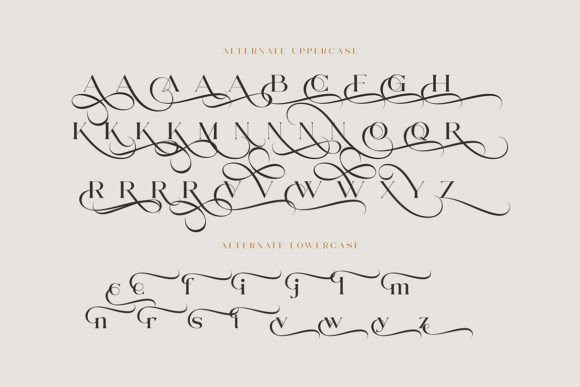 ALTERNATE UPPERCASE
A A A A A B C F G H
K K K K M N N N N O Q R
R R R R V V W W X Y Z
ALTERNATE LOWERCASE
e e f i j l m
n r s t v w y z